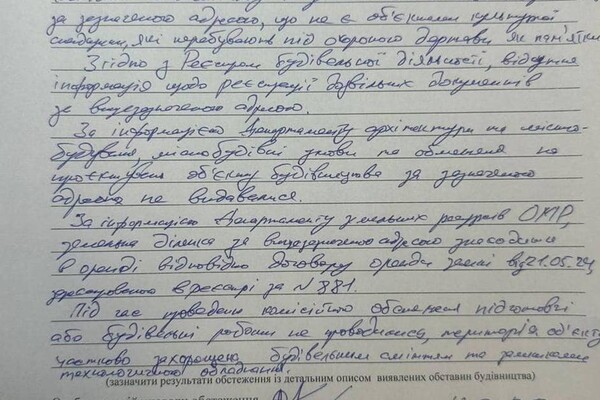 за зазначеною адресою, що не є об'єктами культурної
спадщини, які перебувають під охороною держави як пам'ятки
Згідно з Реєстром будівельної діяльності, відсутня
інформація щодо реєстрації дозвільних документів
за вищезазначеною адресою.
За інформацією Департаменту архітектури та місто-
будування, містобудівні умови та обмеження на
проєктування об'єкту будівництва за зазначеною
адресою не видавалися.
За інформацією Департаменту земельних ресурсів ОМР,
земельна ділянка за вищезазначеною адресою знаходиться
в оренді відповідно договору оренди землі від 21.05.24,
зареєстрованого в реєстрі за № 381.
Під час проведення комісійного обстеження підготовчі
або будівельні роботи не проводились, територія об'єкту
частково захаращена будівельним сміттям та залишками
технологічного обладнання.
(зазначити результати обстеження із детальним описом виявлених обставин будівництва)